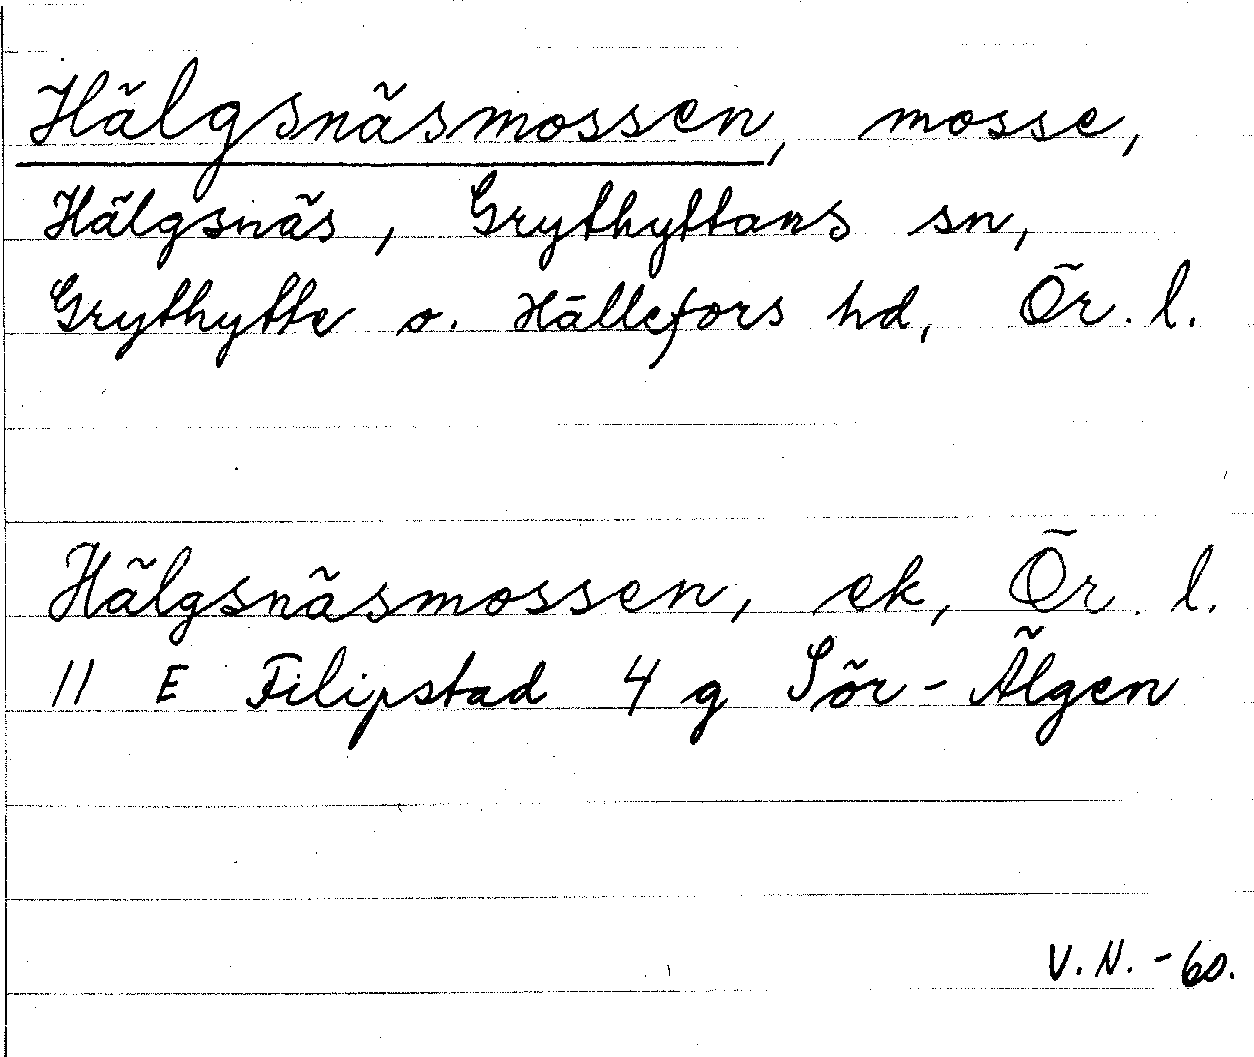 Hälgsnäsmossen, mosse,
Hälgsnäs, Grythyttans sn,
Grythytte o. Hällefors hd, Ör. l.
Hälgsnäsmossen, ek, Ör. l.
11 E Filipstad 4 g Sör-Älgen
V.N. -60.